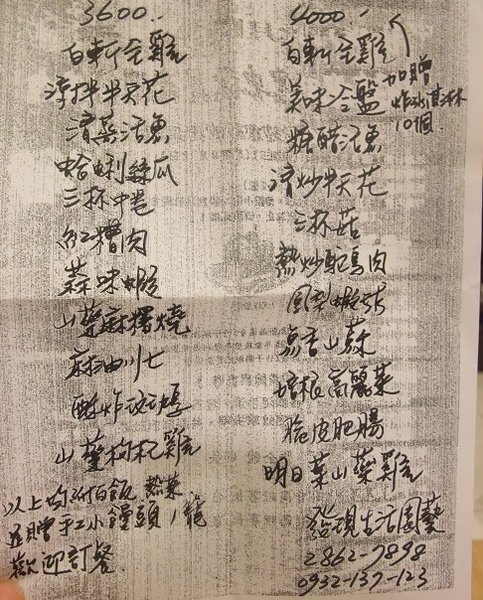 3600..
白斬全雞
涼拌半天花
清蒸活魚
蛤蜊絲瓜
三杯中卷
紅糟肉
蒜味蝦
山藥麻糬燒
麻油川七
酥炸
山藥枸杞雞
以上均附白飯 熱菜
送贈手工小饅頭1籠
歡迎訂餐.
4000.
白斬全雞
加贈
炸冰淇淋
10個.
美味冷盤
糖醋活魚
清炒半天花
三杯菇
熱炒鴕鳥肉
鳳梨蝦球
烏香山蘇
培根高麗菜
脆皮肥腸
明日葉山藥雞
發現生活園藝
2862-7898
0932-137-123